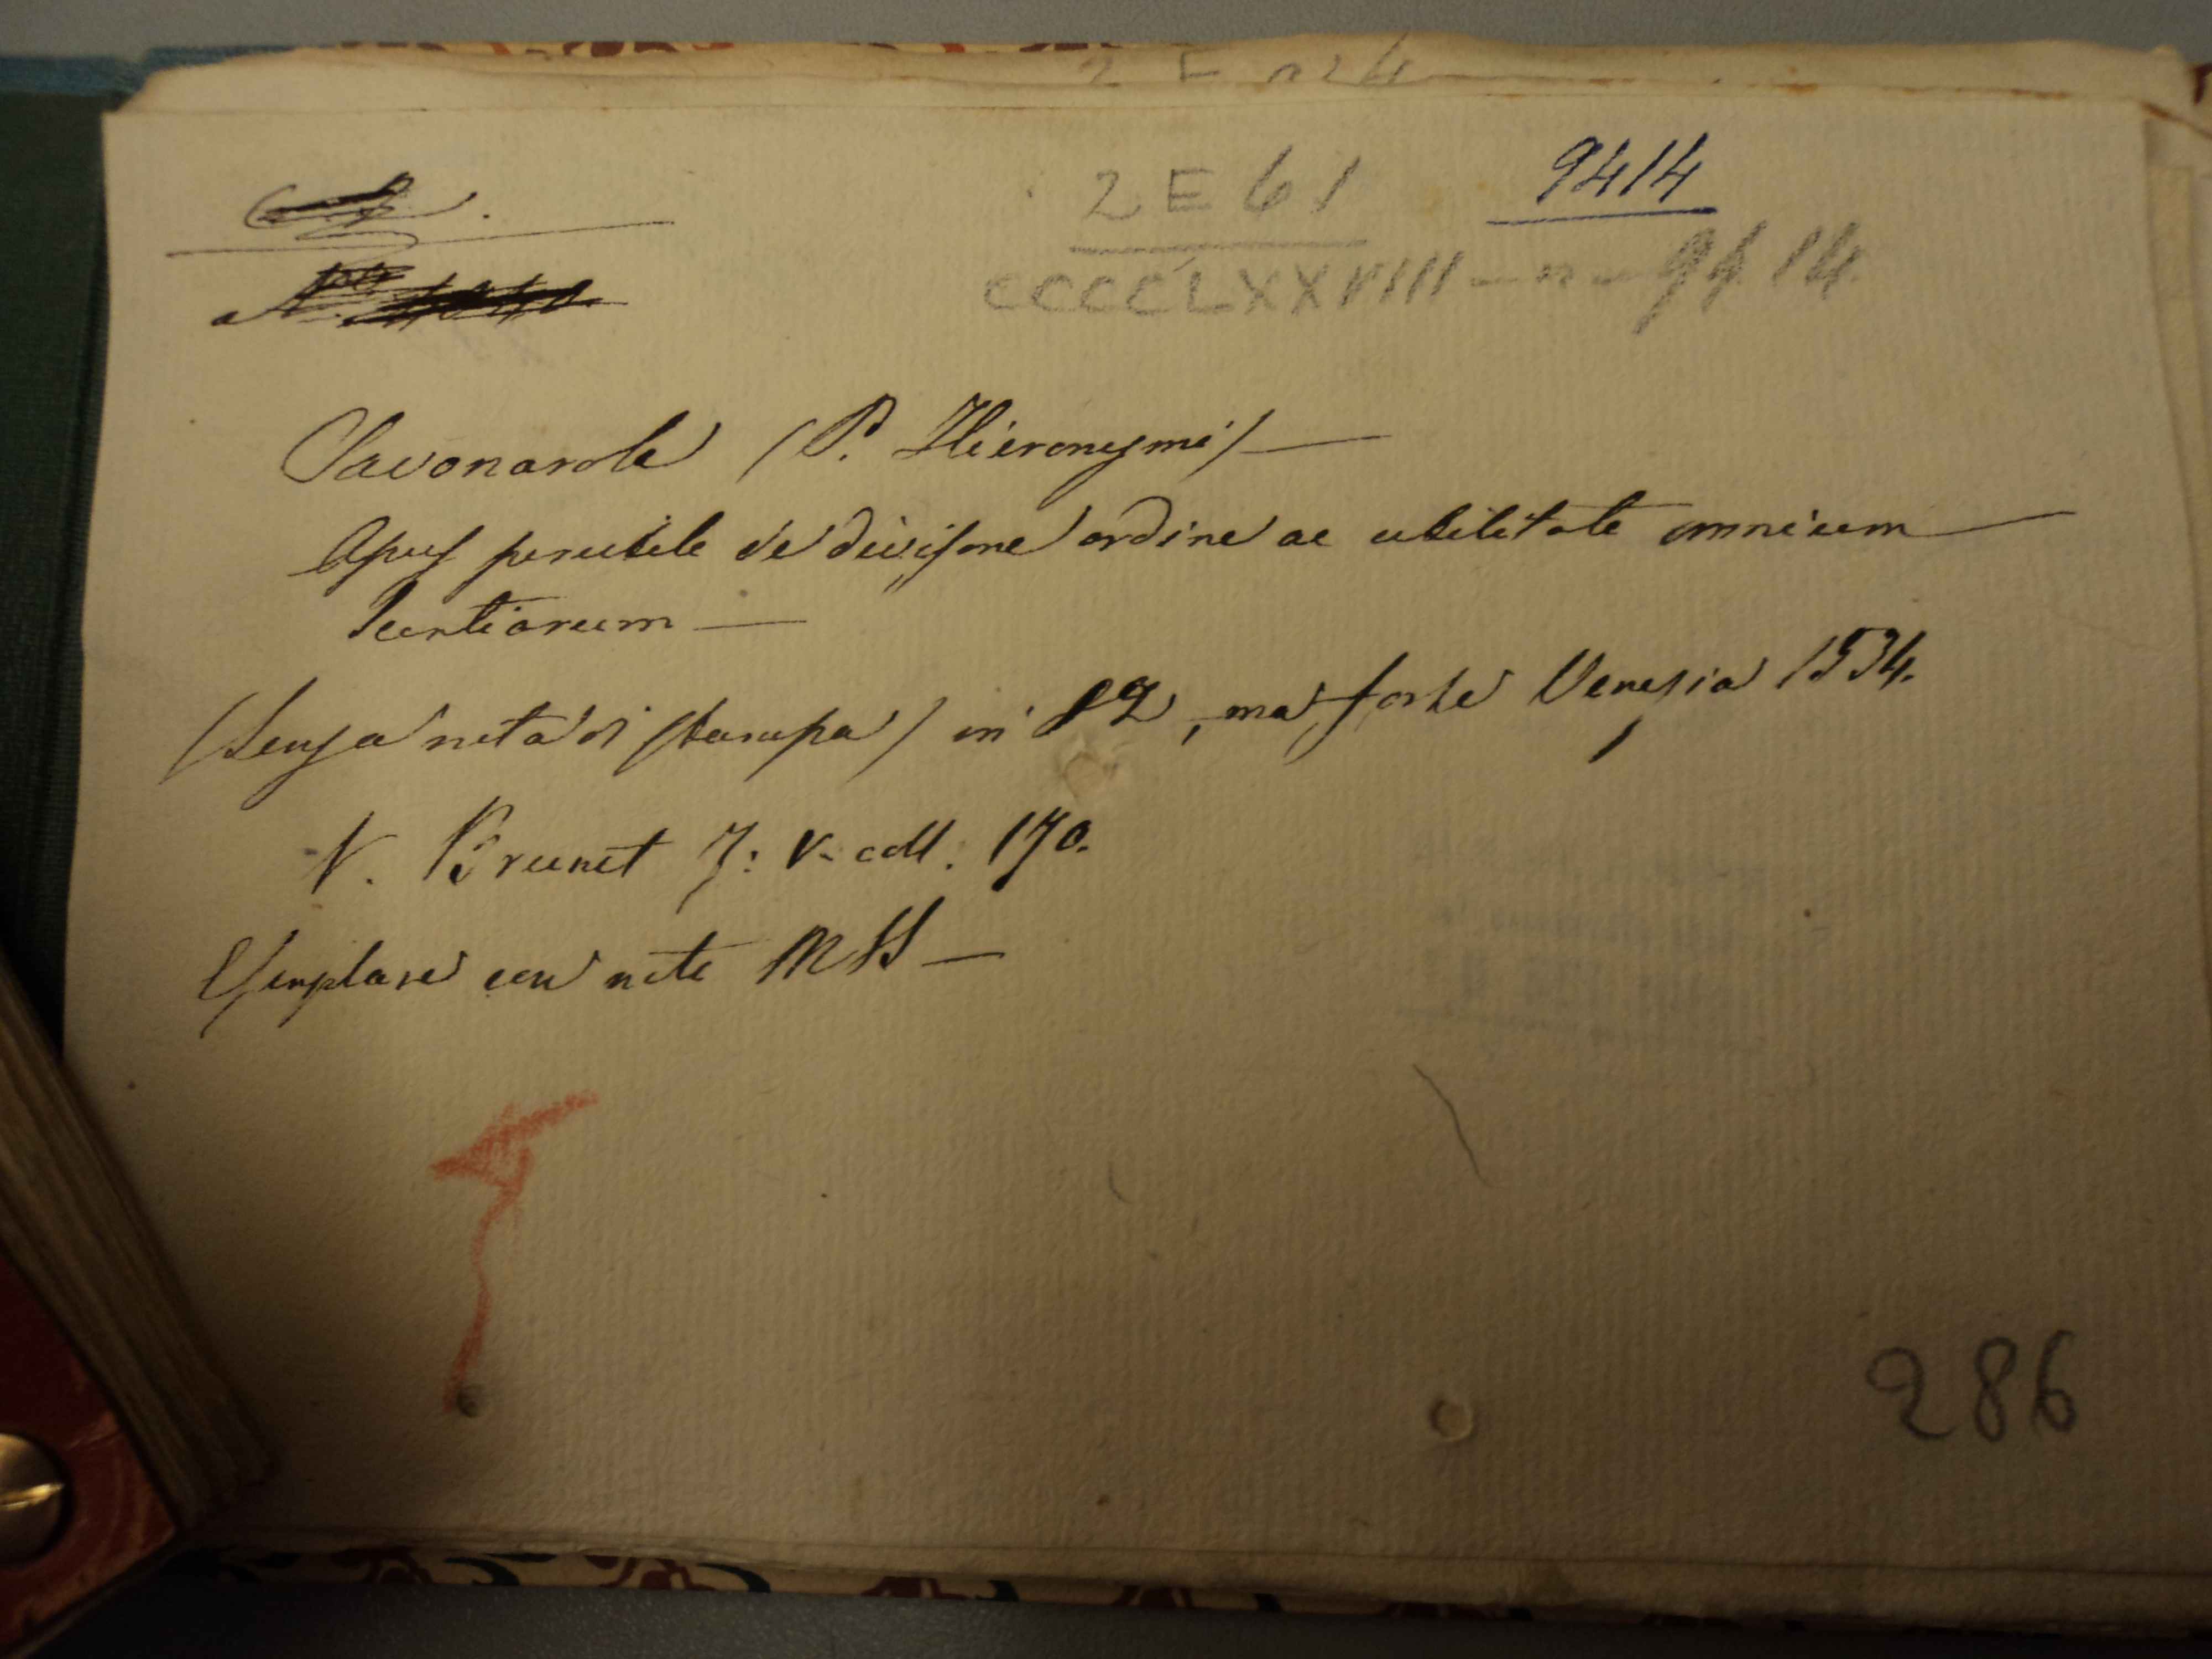 2 E 61
9414
CCCCLXXVIII - n - 9414.
Savonarole (P. Hieronymi) —
Opus perutile de divisione ordine ac utilitate omnium —
Scientiarum —
(Senza nota di stampa) in 12, ma forse Venezia 1534.
V. Brunet T: V. coll. 170.
Esemplare con note MSS —
286